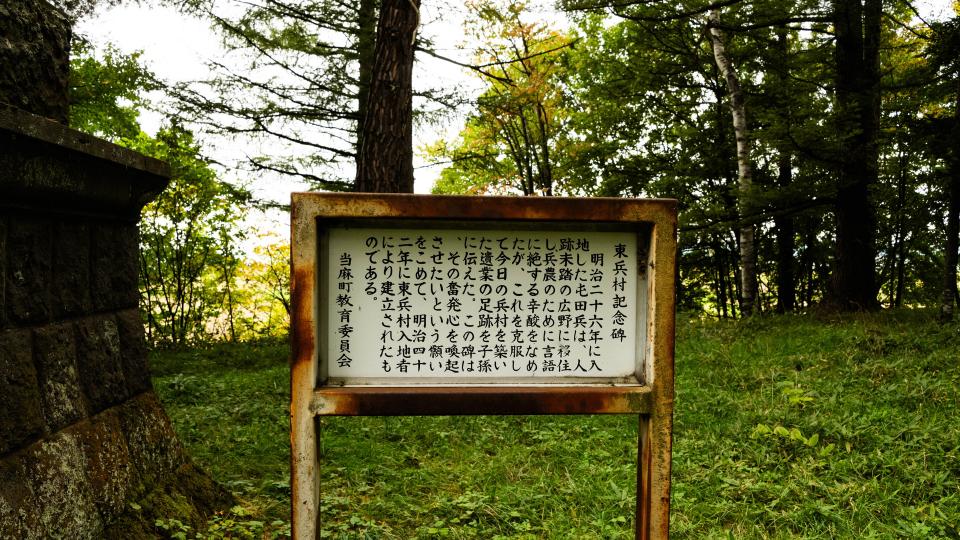 東兵村記念碑
明治二十六年に入
地した屯田兵は、人
跡未踏の広野に移住
し兵農のために言語
に絶する辛酸をなめ
たが、これを克服し
て今日の兵村を築い
た遺業の足跡を子孫
に伝えた。この碑は
、その奮発心を喚起
させたいという願い
をこめて、明治四十
二年に東兵村入地者
により建立されたも
のである。
当麻町教育委員会